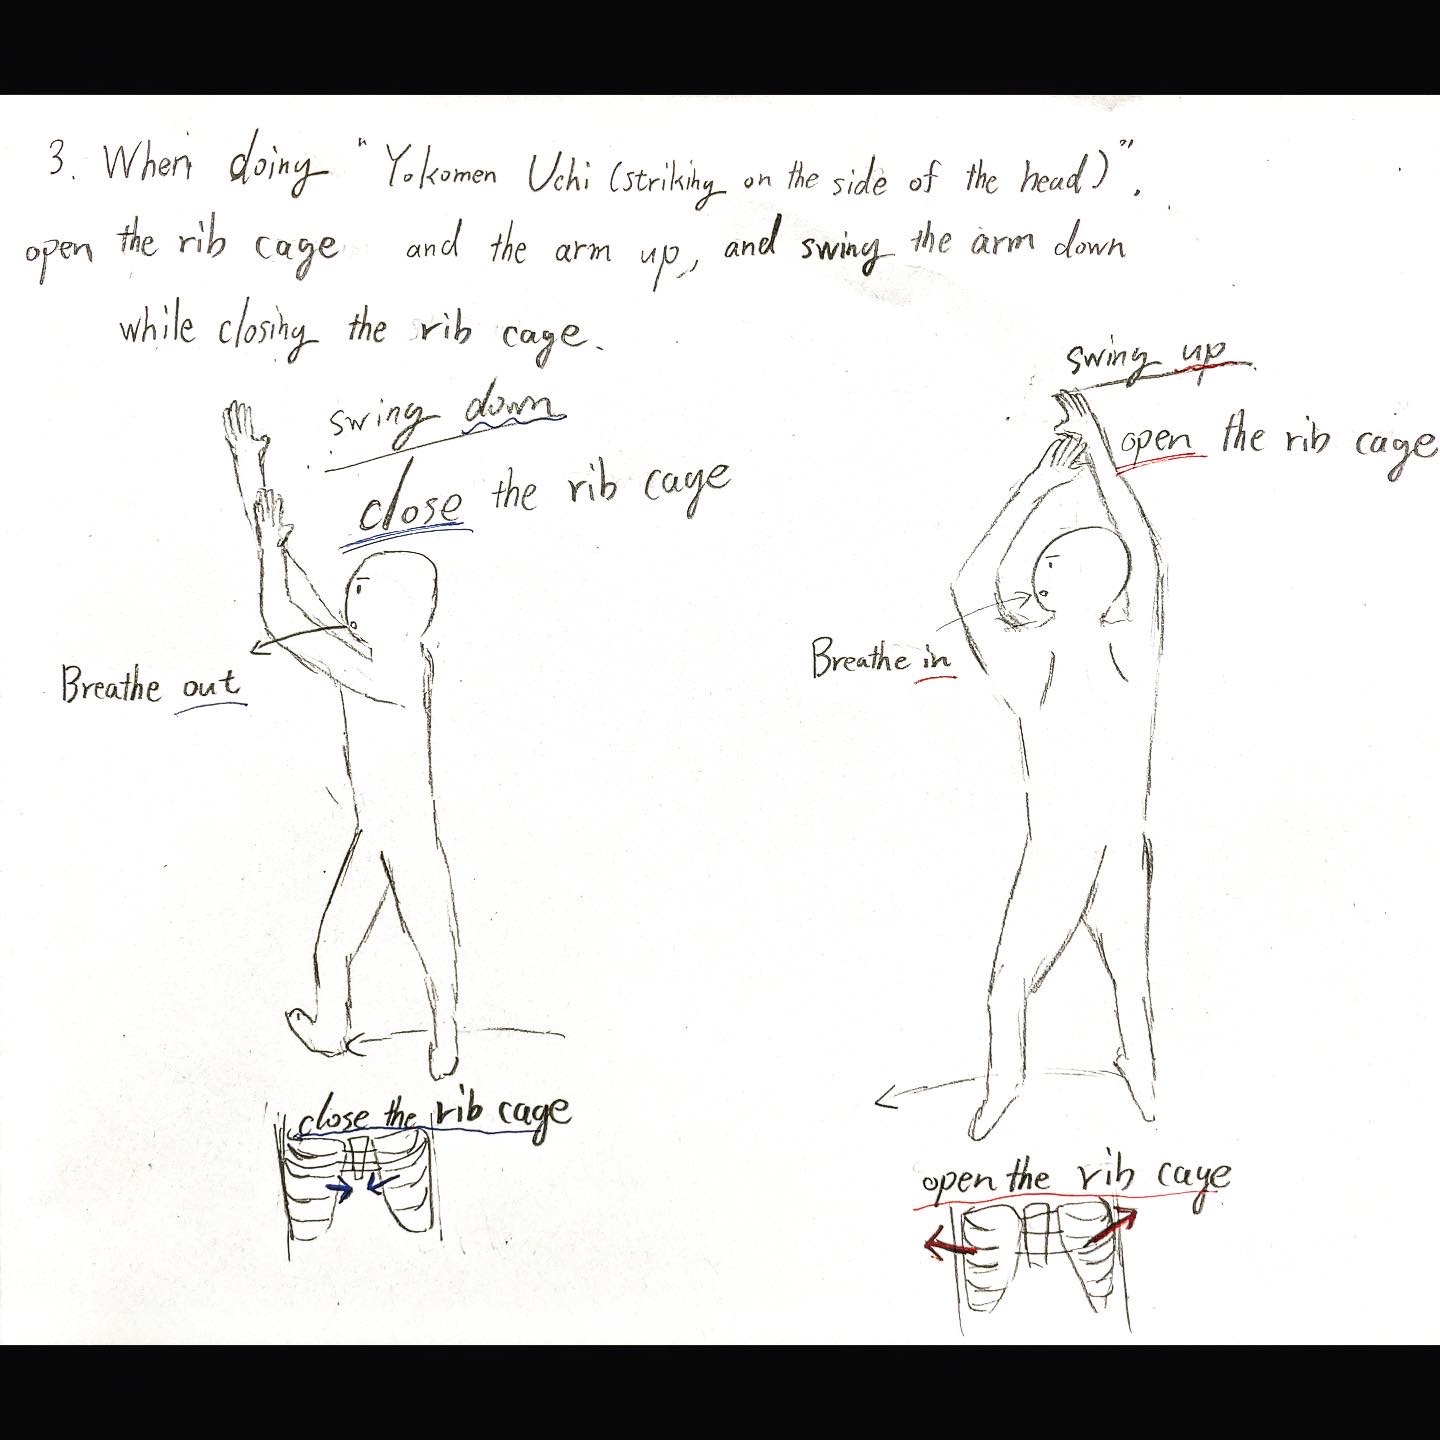 3. When doing "Yokomen Uchi (striking on the side of the head)".
open the rib cage and the arm up, and swing the arm down
while closing the rib cage.
swing down
close the rib cage
Breathe out
close the rib cage
swing up
open the rib cage
Breathe in
open the rib cage